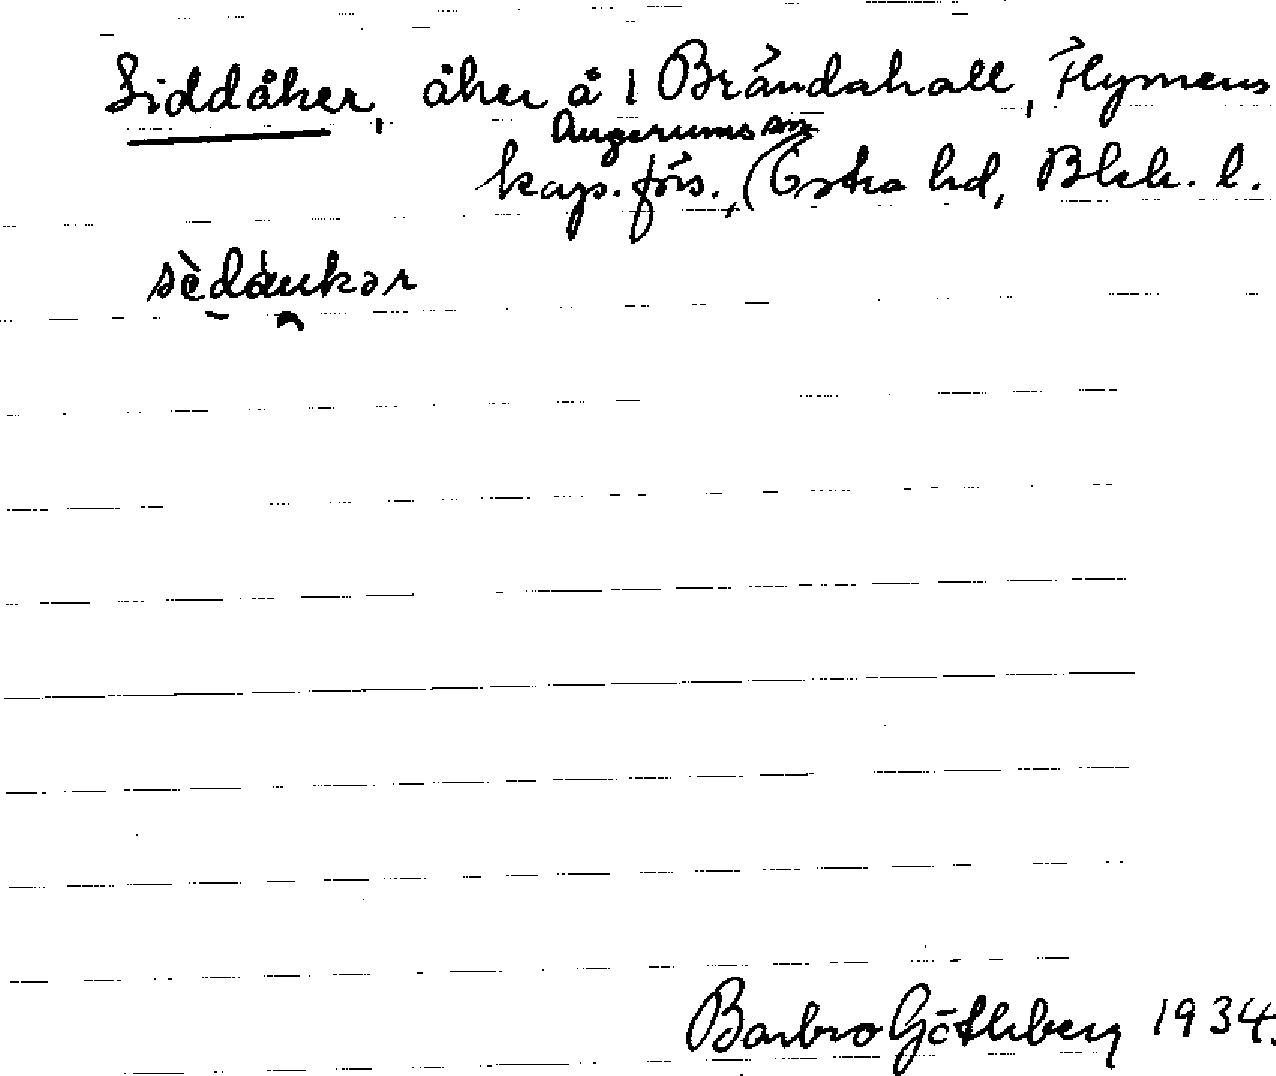 Siddåker, åker å 1 Brändahall, Flymens
Augerums sn
kap.förs., Östra hd, Blek. l.
sèdåukər
Barbro Göthberg 1934.